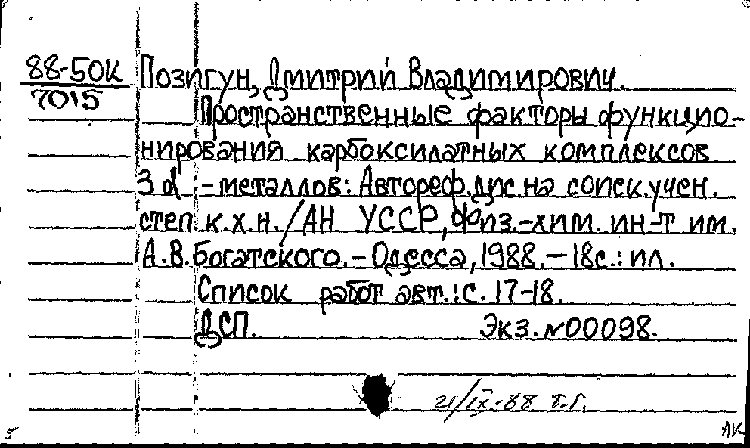 88-50К
7015
Позигун, Дмитрий Владимирович.
Пространственные факторы функцио-
нирования карбоксилатных комплексов
3 d - металлов: Автореф. дис. на соиск. учен.
степ. к.х.н. / АН УССР, Физ.-хим. ин-т им.
А.В. Богатского. - Одесса, 1988. - 18с.: ил.
Список работ авт.: с. 17-18.
ДСП. Экз. №00098.
21/IX-88 т.г.
5 АК